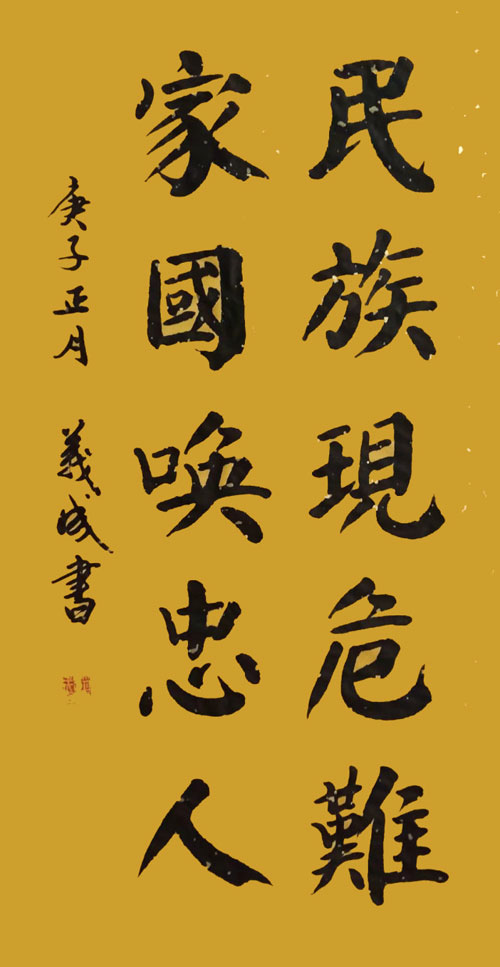 民族現危難
家國喚忠人
庚子正月 義成書